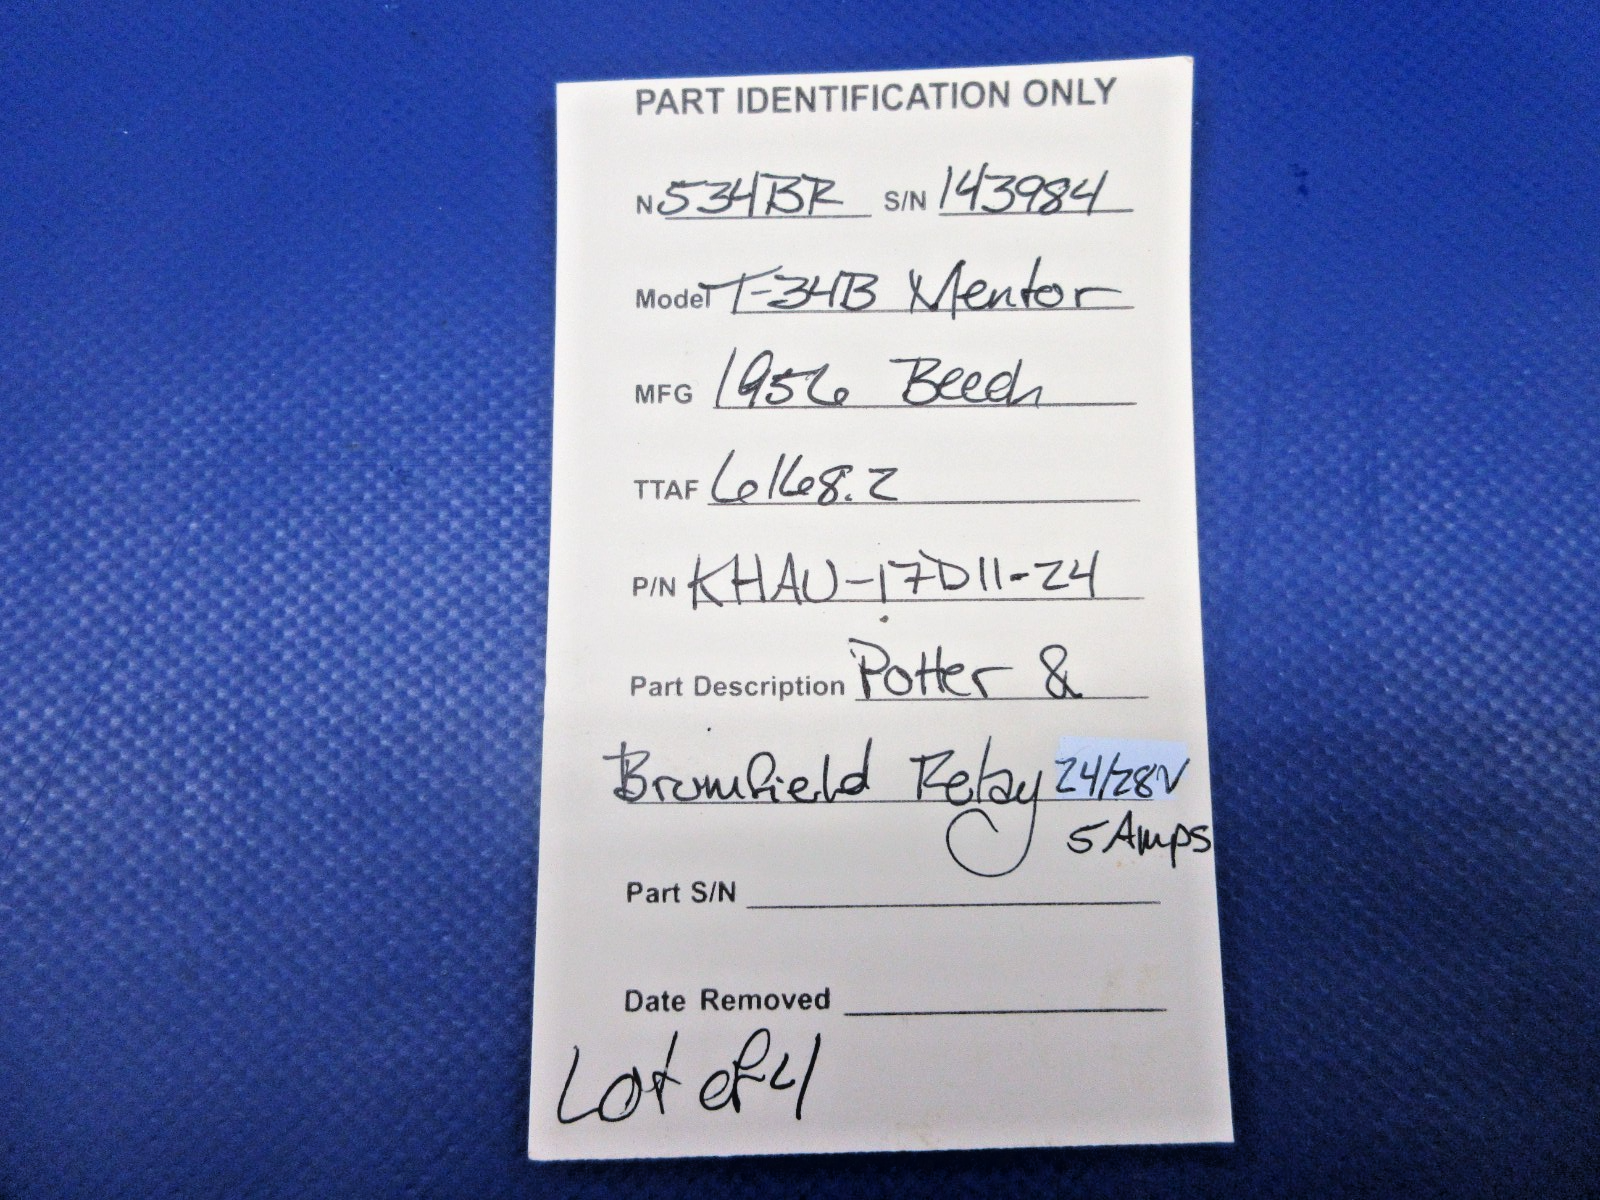 PART IDENTIFICATION ONLY
N 534BR S/N 143984
Model T-34B Mentor
MFG 1956 Beech
TTAF 6168.2
P/N KHAU-17D11-24
Part Description Potter &
Brumfield Relay 24/28V
5 Amps
Part S/N
Date Removed
Lot of 4